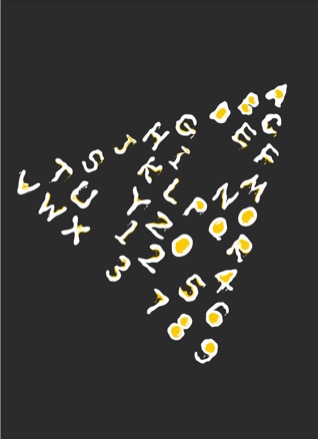 A
BC
DEF
G
HI
JKL
M
NO
PQR
S
TU
VWX
YZ0
12
3
4
56
789